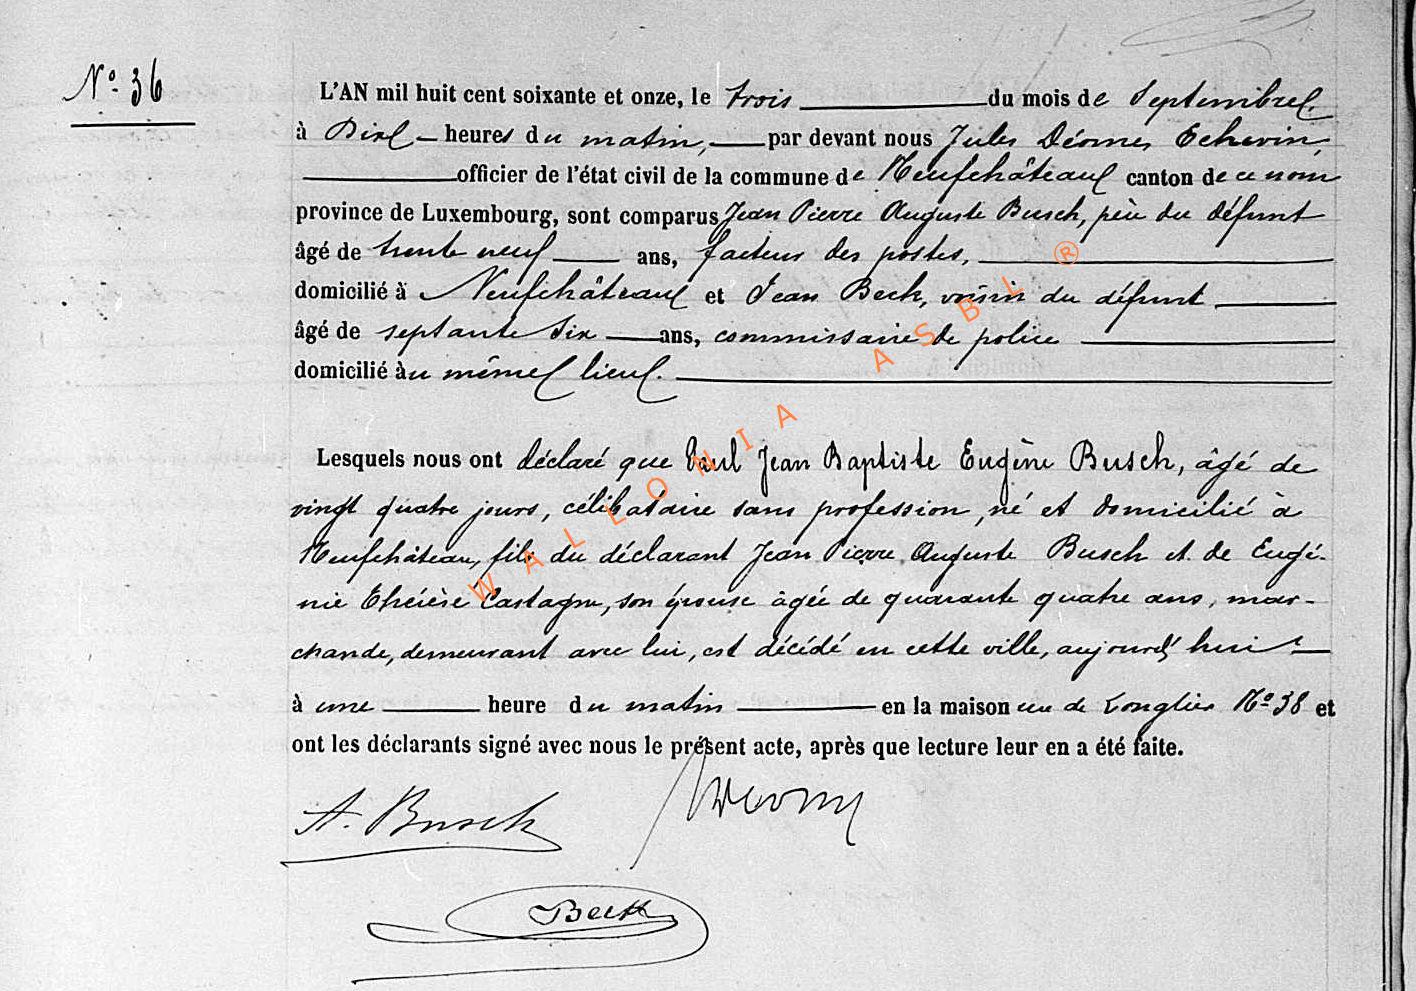 Nº 36
L'AN mil huit cent soixante et onze, le trois du mois de Septembre
à Dix heures du matin, par devant nous Jules Déome, Echevin,
officier de l'état civil de la commune de Neufchâteau canton de ce nom
province de Luxembourg, sont comparus Jean Pierre Auguste Busch, père du défunt
âgé de trente neuf ans, facteur des postes,
domicilié à Neufchâteau et Jean Beck, voisin du défunt
âgé de septante six ans, commissaire de police
domicilié au même lieu.
Lesquels nous ont déclaré que Paul Jean Baptiste Eugène Busch, âgé de
vingt quatre jours, célibataire sans profession, né et domicilié à
Neufchâteau, fils du déclarant Jean Pierre Auguste Busch et de Eugé-
nie Thérèse Castagne, son épouse âgée de quarante quatre ans, mar-
chande, demeurant avec lui, est décédé en cette ville, aujourd'hui
à une heure du matin en la maison rue de Longlier Nº 38 et
ont les déclarants signé avec nous le présent acte, après que lecture leur en a été faite.
A. Busch
Beck
WALLONIA ASBL ®